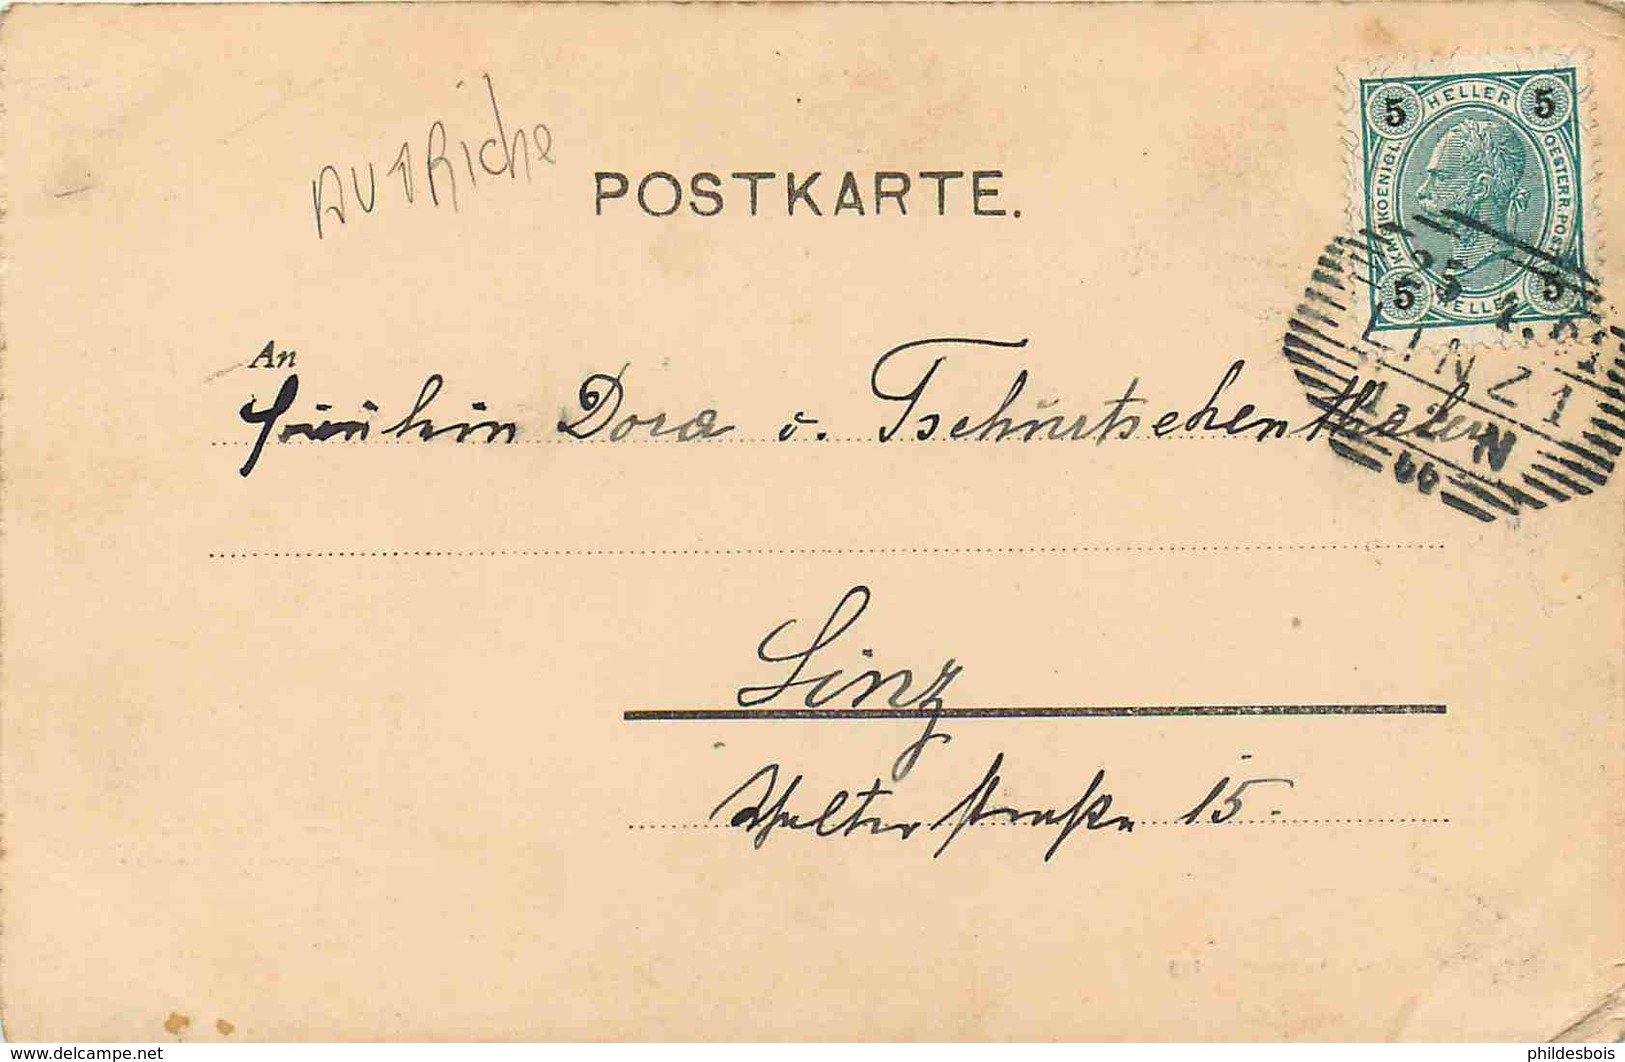 AUTRiche
POSTKARTE.
5 HELLER 5
KAIS. KOENIGL. OESTERR. POST
5 HELLER 5
25 4.
LINZ 1
An
Fräulein Dora v. Tschurtschenthaler
Linz
straße 15.
www.delcampe.net
phildesbois